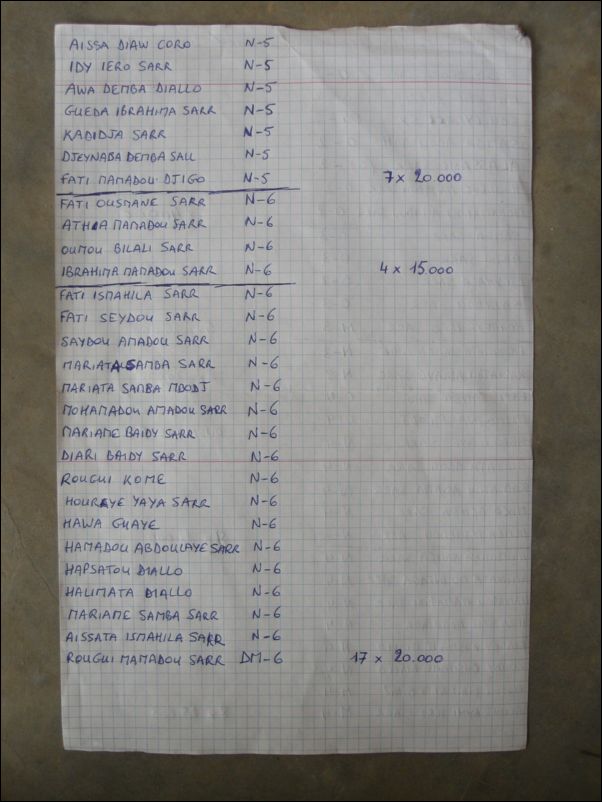 AISSA DIAW CORO N-5
IDY IERO SARR N-5
AWA DEMBA DIALLO N-5
GUEDA IBRAHIMA SARR N-5
KADIDJA SARR N-5
DJEYNABA DEMBA SALL N-5
FATI MAMADOU DJIGO N-5 7 x 20.000
FATI OUSMANE SARR N-6
ATHIA MAMADOU SARR N-6
OUMOU BILALI SARR N-6
IBRAHIMA MAMADOU SARR N-6 4 x 15.000
FATI ISMAHILA SARR N-6
FATI SEYDOU SARR N-6
SAYDOU AMADOU SARR N-6
MARIATA SAMBA SARR N-6
MARIATA SAMBA MDODJ N-6
MOHAMADOU AMADOU SARR N-6
MARIAME BAIDY SARR N-6
DIARI BAIDY SARR N-6
ROUGUI KOME N-6
HOURAYE YAYA SARR N-6
HAWA GUAYE N-6
HAMADOU ABDOULAYE SARR N-6
HAPSATOU DIALLO N-6
HALIMATA DIALLO N-6
MARIAME SAMBA SARR N-6
AISSATA ISMAHILA SARR N-6
ROUGUI MAMADOU SARR DM-6 17 x 20.000